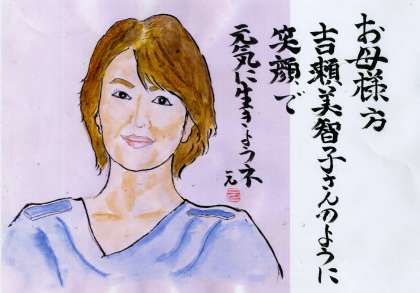 お母様方
吉瀬美智子さんのように
笑顔で
元気に生きようネ
元